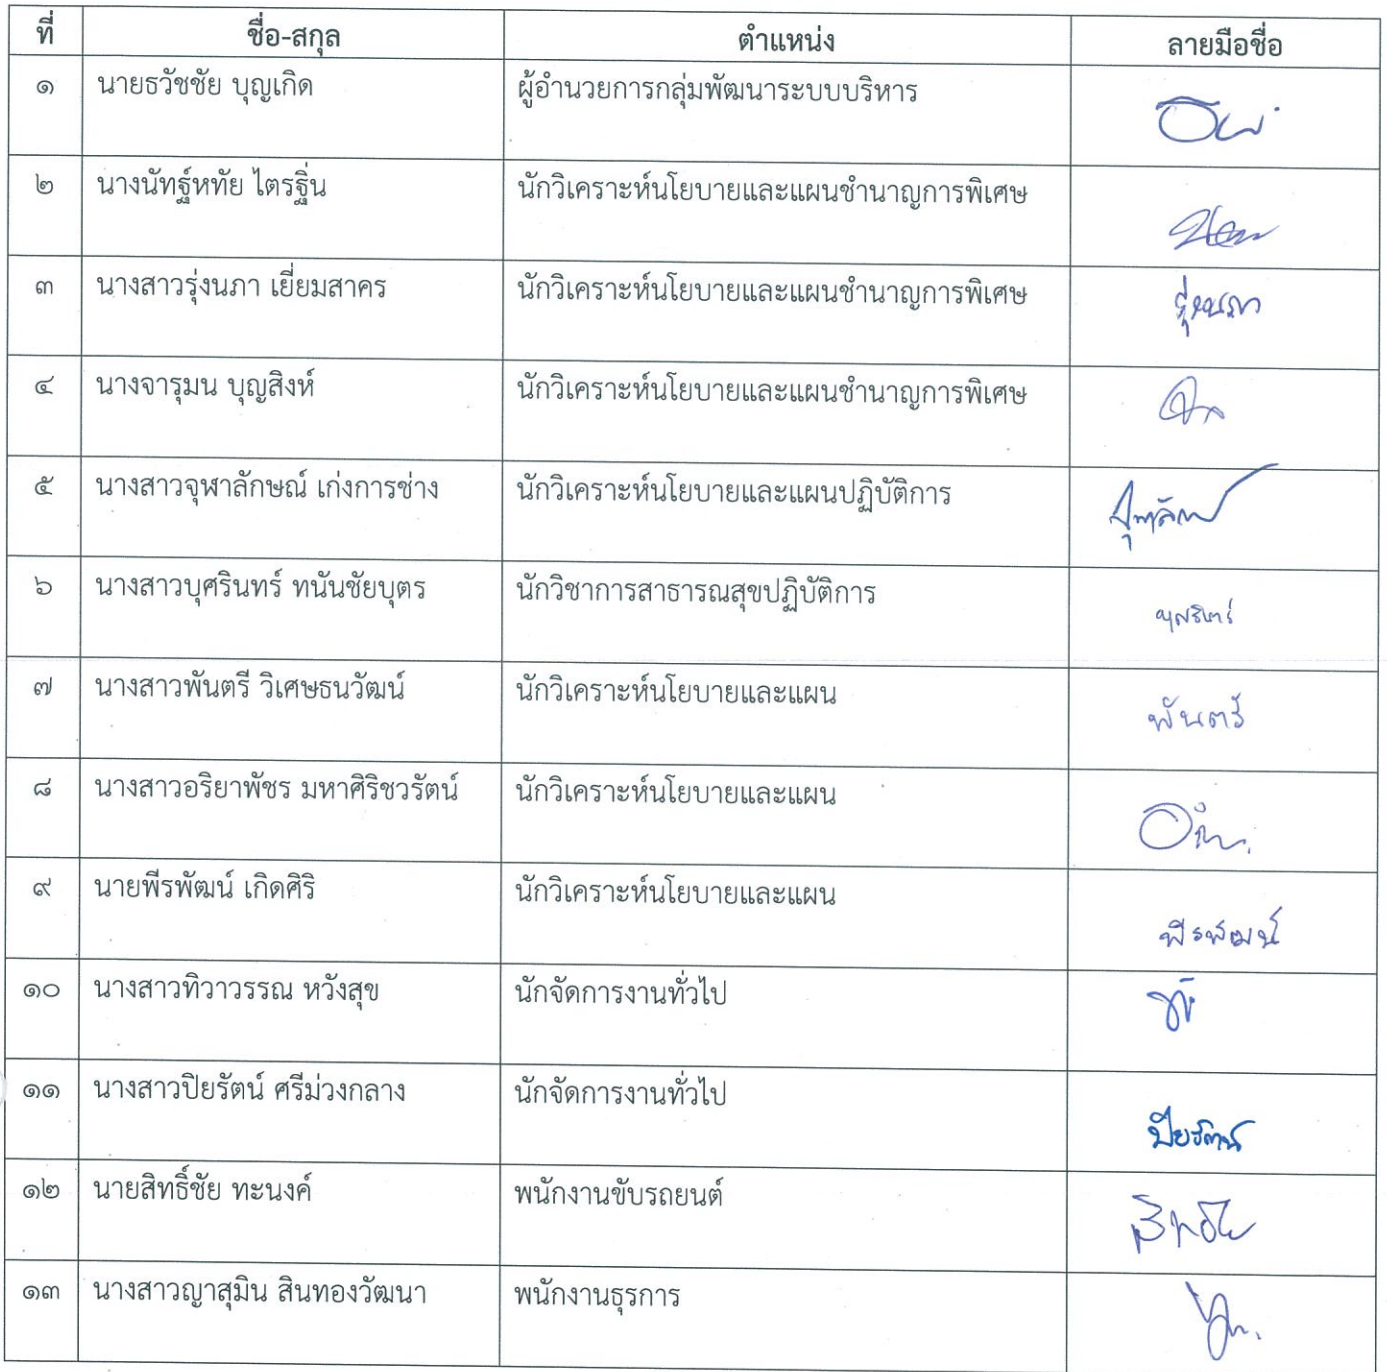 ที่ ชื่อ-สกุล ตำแหน่ง ลายมือชื่อ
๑ นายธวัชชัย บุญเกิด ผู้อำนวยการกลุ่มพัฒนาระบบบริหาร
๒ นางนัทฐ์หทัย ไตรฐิ่น นักวิเคราะห์นโยบายและแผนชำนาญการพิเศษ
๓ นางสาวรุ่งนภา เยี่ยมสาคร นักวิเคราะห์นโยบายและแผนชำนาญการพิเศษ รุ่งนภา
๔ นางจารุมน บุญสิงห์ นักวิเคราะห์นโยบายและแผนชำนาญการพิเศษ
๕ นางสาวจุฬาลักษณ์ เก่งการช่าง นักวิเคราะห์นโยบายและแผนปฏิบัติการ
๖ นางสาวบุศรินทร์ ทนันชัยบุตร นักวิชาการสาธารณสุขปฏิบัติการ บุศรินทร์
๗ นางสาวพันตรี วิเศษธนวัฒน์ นักวิเคราะห์นโยบายและแผน พันตรี
๘ นางสาวอริยาพัชร มหาศิริชวรัตน์ นักวิเคราะห์นโยบายและแผน
๙ นายพีรพัฒน์ เกิดศิริ นักวิเคราะห์นโยบายและแผน พีรพัฒน์
๑๐ นางสาวทิวาวรรณ หวังสุข นักจัดการงานทั่วไป
๑๑ นางสาวปิยรัตน์ ศรีม่วงกลาง นักจัดการงานทั่วไป ปิยรัตน์
๑๒ นายสิทธิ์ชัย ทะนงค์ พนักงานขับรถยนต์
๑๓ นางสาวญาสุมิน สินทองวัฒนา พนักงานธุรการ